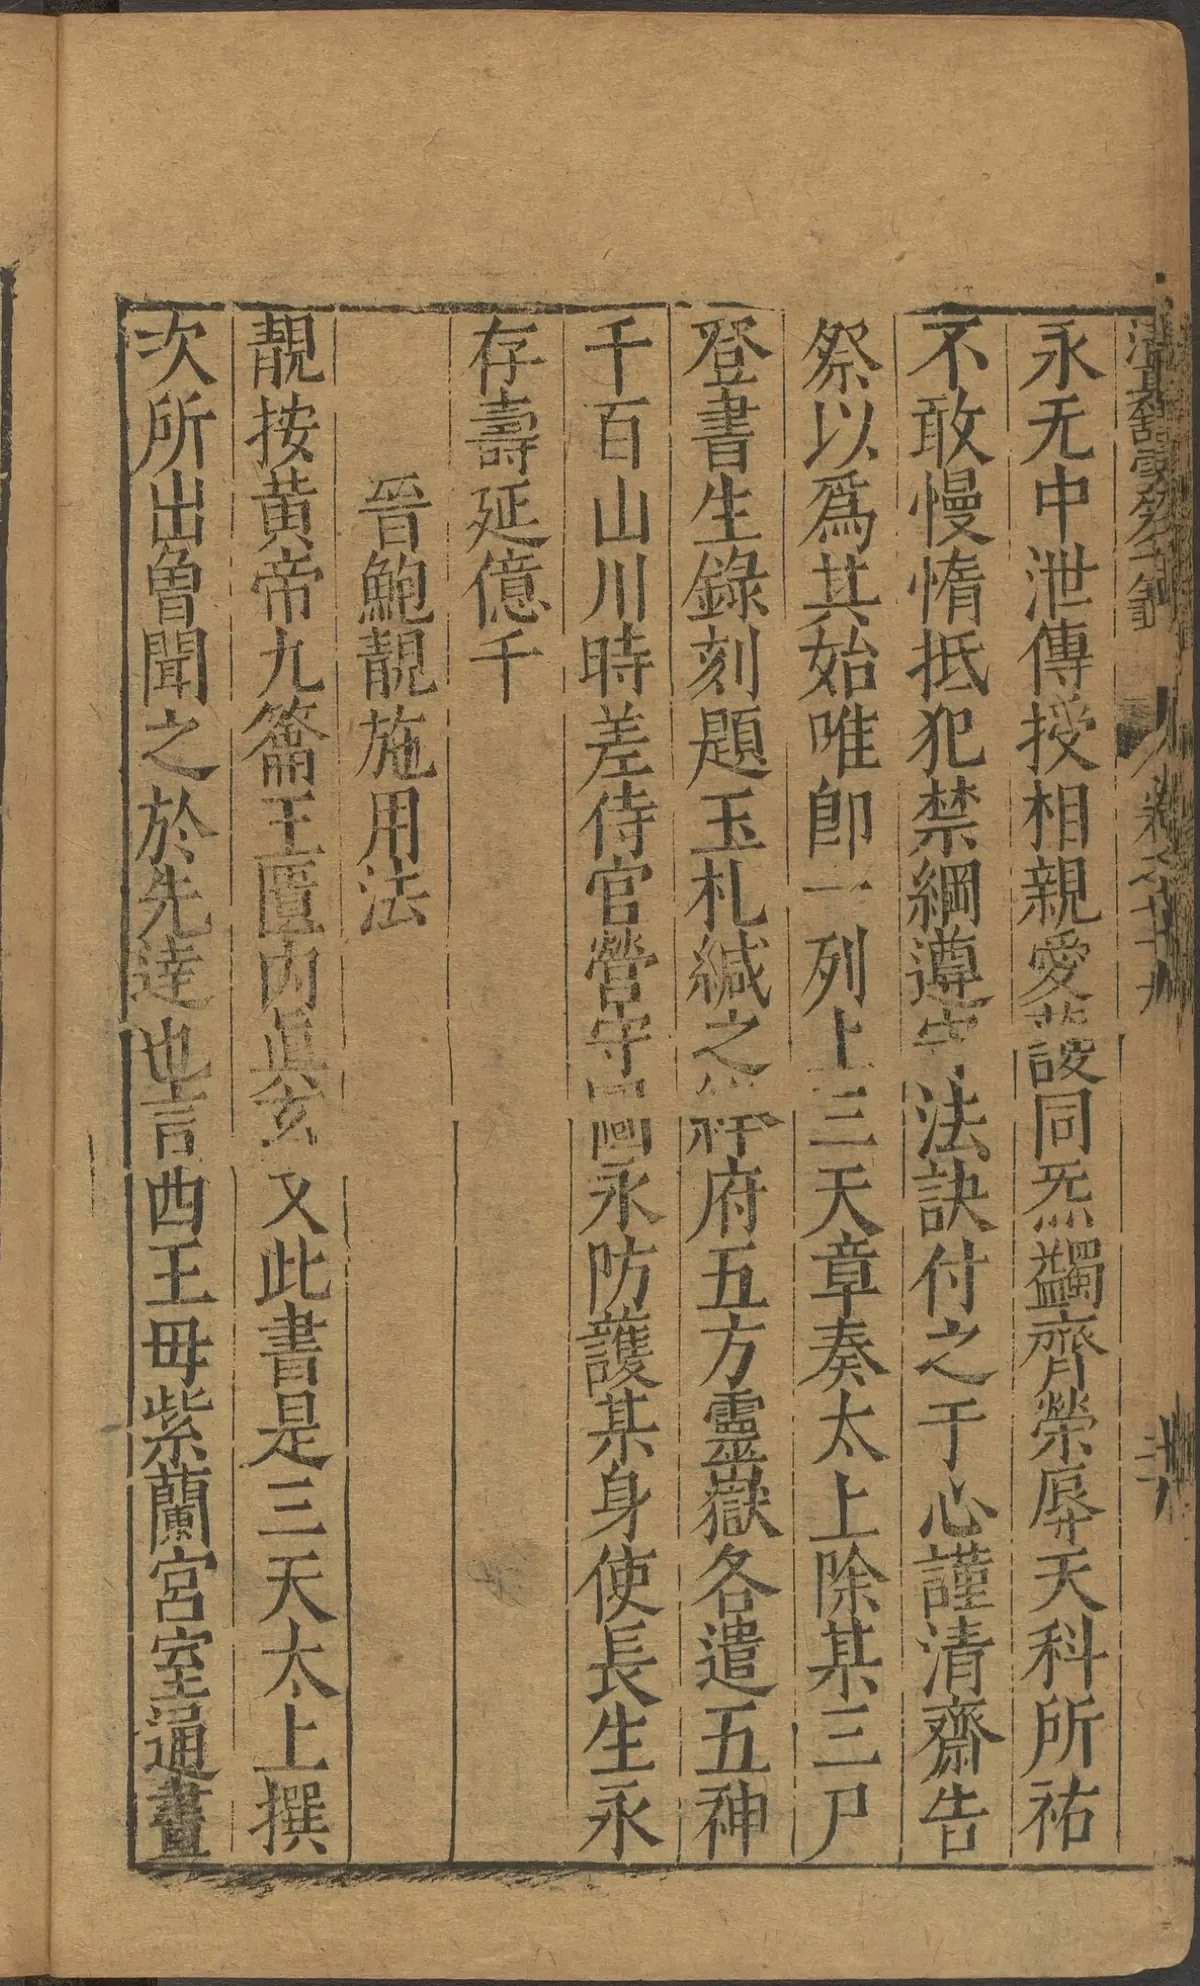 永无中泄傳授相親愛護同炁蠲齊榮辱天科所祐
不敢慢惰抵犯禁綱遵守法訣付之于心謹清齋告
祭以爲其始唯卽一列上三天章奏太上除某三尸
登書生錄刻題玉札緘之 府五方靈嶽各遣五神
千百山川時差侍官營守 永防護某身使長生永
存壽延億千
晉鮑靚施用法
靚按黃帝九籥玉匱內眞玄文此書是三天太上撰
次所出曽聞之於先達也言西王毋紫蘭宮室通畫